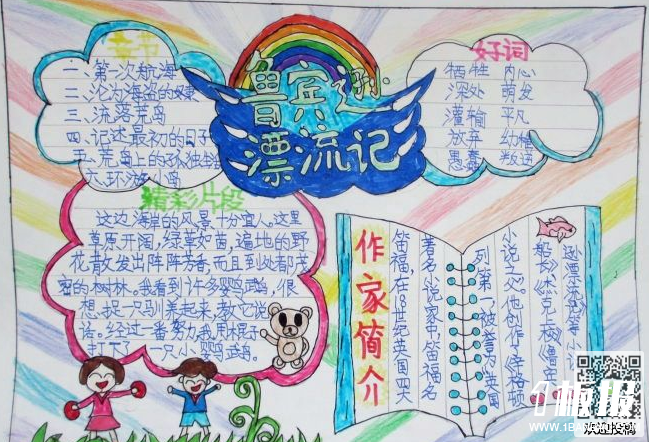 鲁宾逊
漂流记
章节
一、第一次航海
二、沦为海盗的奴隶
三、流落荒岛
四、记述最初的日子
五、荒岛上的孤独生活
六、环游小岛
好词
牺牲 内心
深处 萌发
灌输 平凡
放弃 幼稚
愚蠢 叛逆
精彩片段
这边海岸的风景十分宜人。这里
草原开阔,绿草如茵,遍地的野
花散发出阵阵芳香,而且到处都茂
密的树林。我看到许多鹦鹉,很
想捉一只驯养起来,教它说
话。经过一番努力,我用棍子
打下了一只小鹦鹉。
作家简介
笛福,在18世纪英国四大
著名小说家中,笛福名
列第一,被誉为“英国
小说之父”。他创作《辛格顿
船长》《杰克上校》《鲁宾
逊漂流记》等小说
板报
WWW.1BANBAO.COM
欢迎投稿